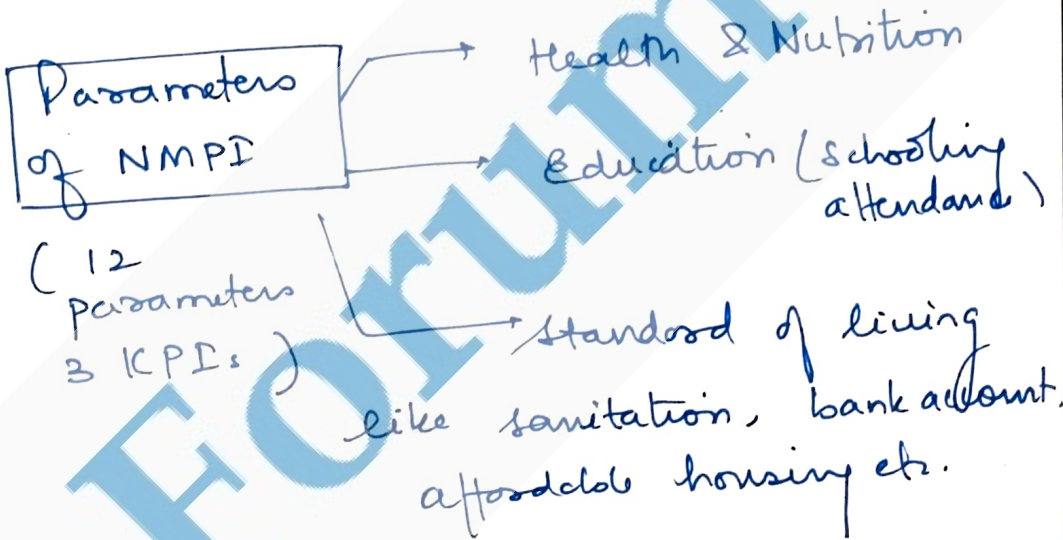 Parameters
of NMPI
( 12
parameters
3 KPIs )
Health & Nutrition
Education (schooling
attendance)
Standard of living
like sanitation, bank account,
affordable housing etc.
Forum